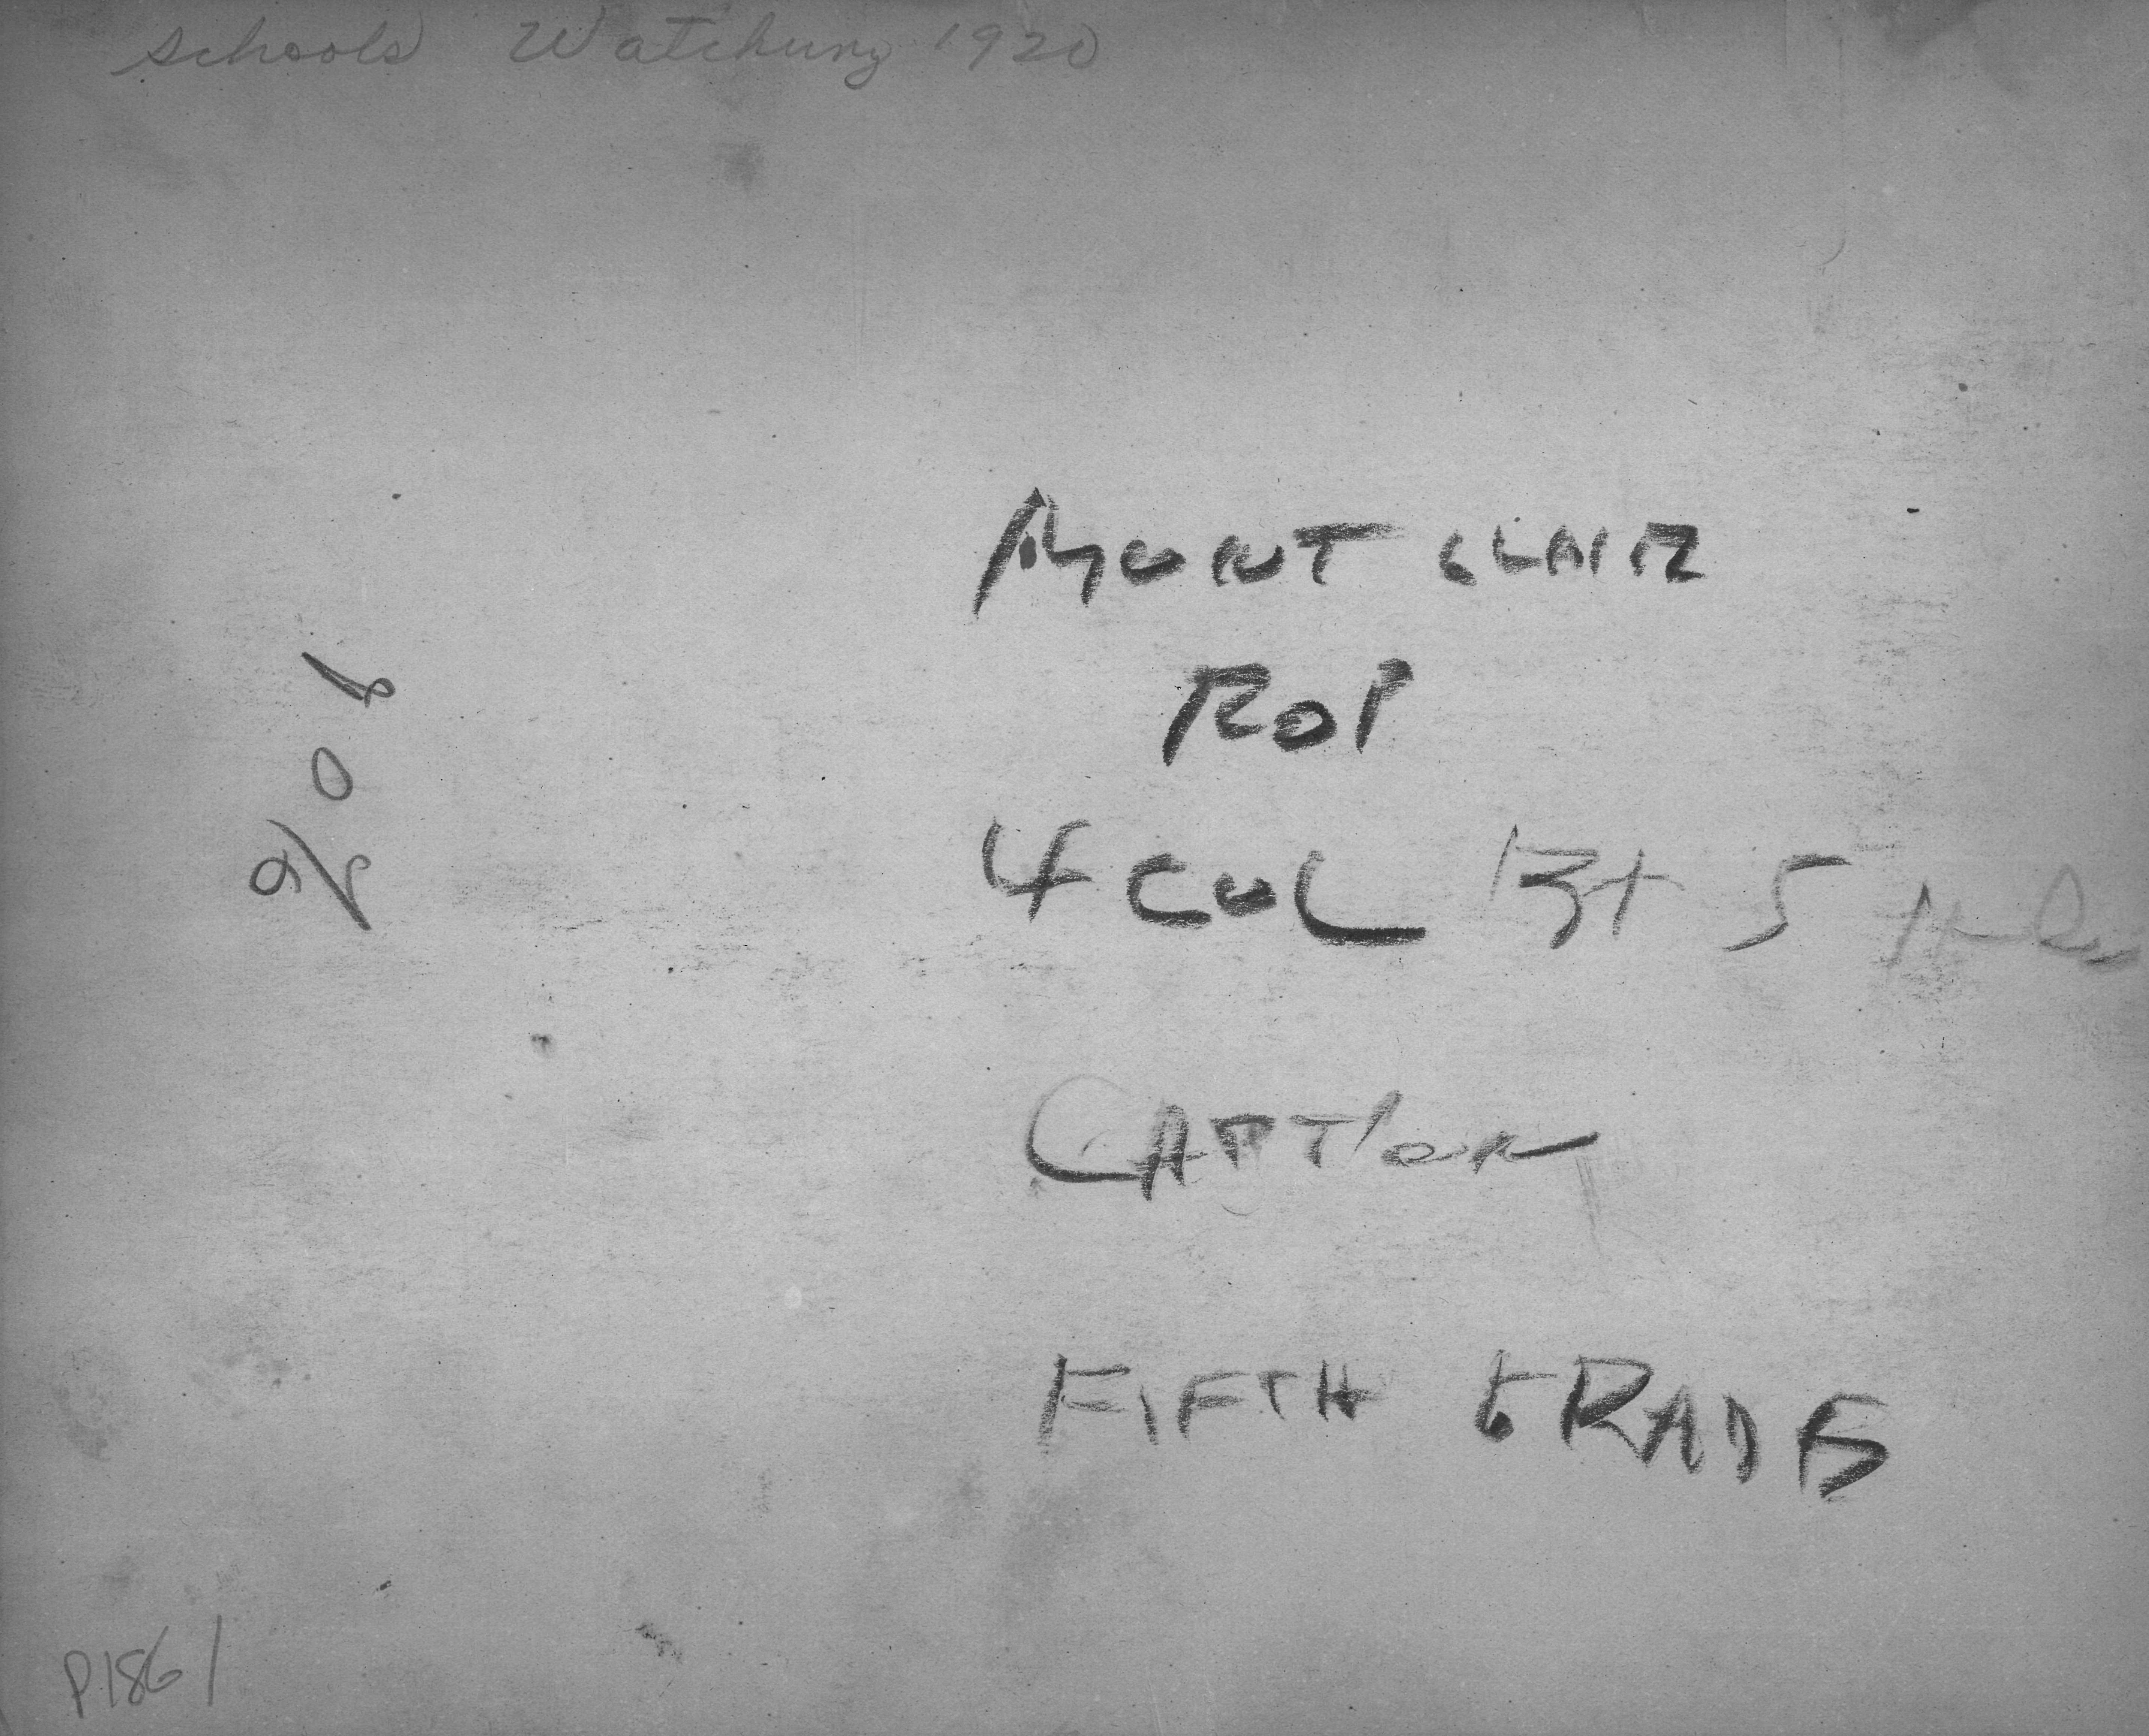 Schools Watchung 1920
MONT CLAIR
ROP
4 COL BY 5
CAPTION
FIFTH GRADE
P1861